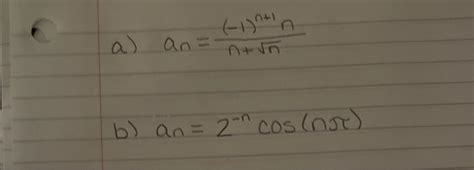 a) an = (-1)^(n+1) n / (n + √n)
b) an = 2^(-n) cos(nπ)